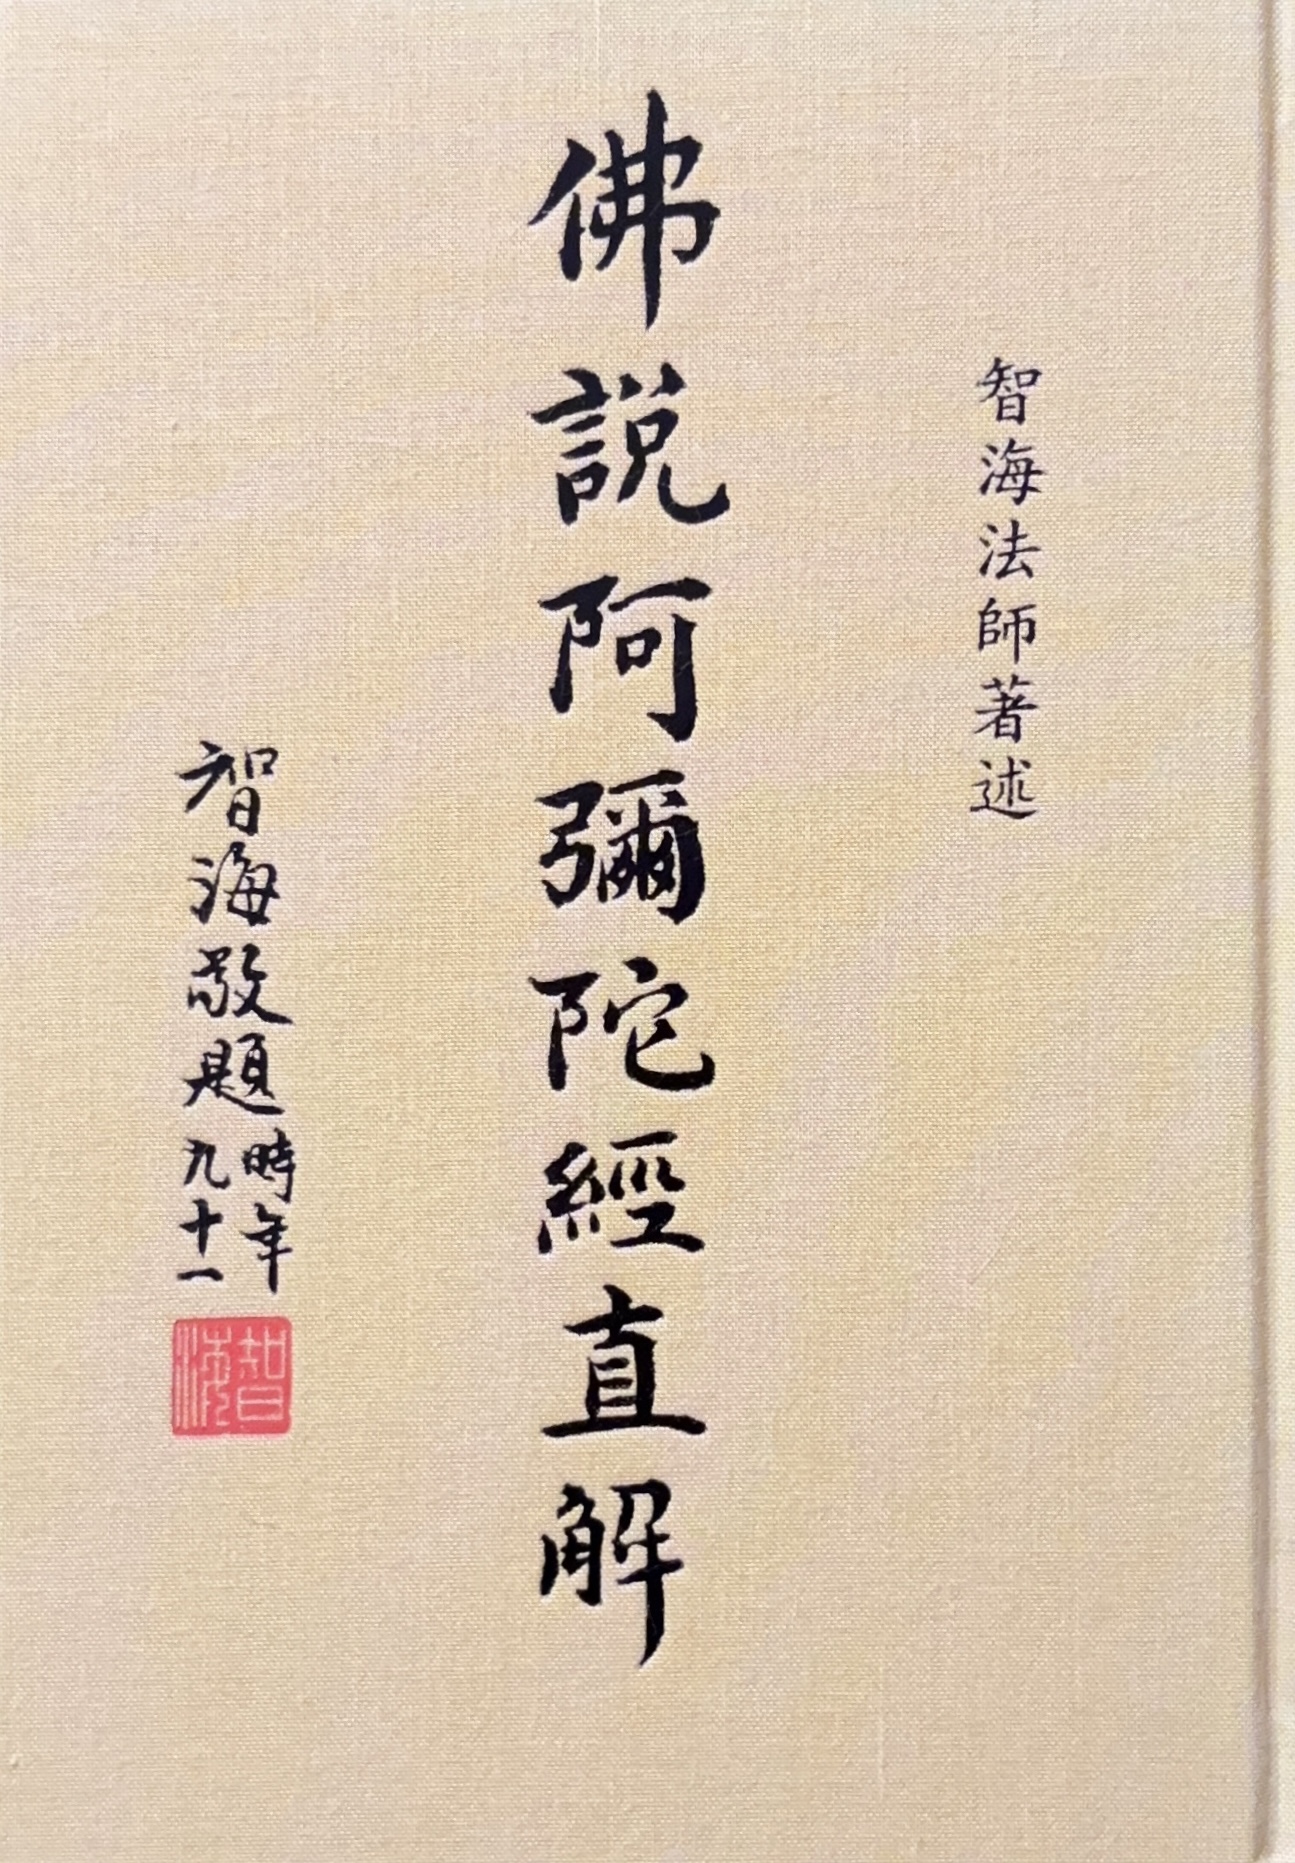 智海法師著述
佛說阿彌陀經直解
智海敬題
時年
九十一
智海